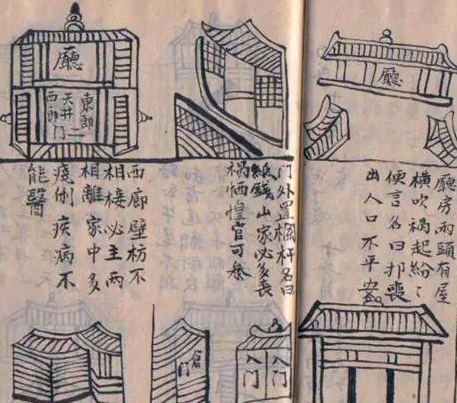 廳
廳房兩頭有屋
橫吹禍起紛〻
便言名曰喪
出人口不平安
門外置欄杆名曰
紙錢山家必多喪
禍恓惶可
廳
東廊
天井
西廊門
西廊壁枋不
相接必主兩
相離家中多
疾病不
能醫
入门
入门
门